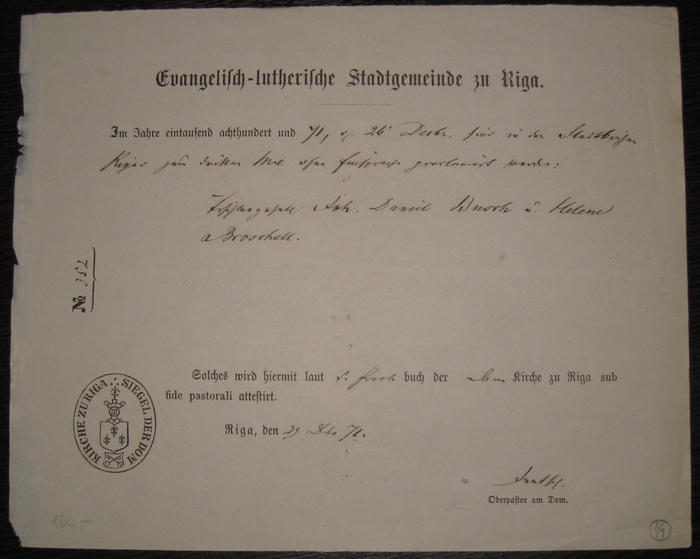 Evangelisch-lutherische Stadtgemeinde zu Riga.
Im Jahre eintausend achthundert und 71, d. 26 Decbr. sind in den Stadtkirchen
Rigas zum dritten Mal ohne Einsprache proclamirt worden:
Joh. Daniel Busch u. Helene
Broschell.
№ 352
Solches wird hiermit laut d. Procl. buch der Dom Kirche zu Riga sub
fide pastorali attestirt.
Riga, den 29 Dec 71.
Oberpastor am Dom.
SIEGEL DER DOM KIRCHE ZU RIGA
160.-
14